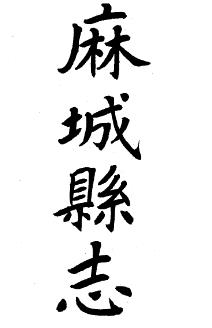 麻城縣志